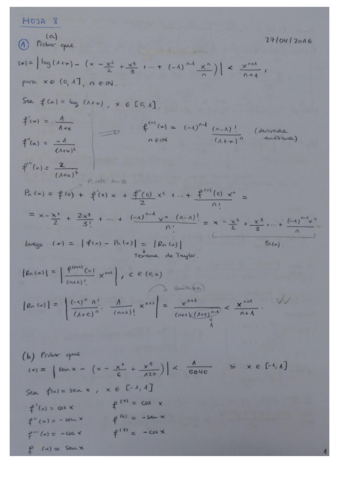 HOJA 8
(a) 27/04/2016
① Probar que
(*) = | log(1+x) - (x - x²/2 + x³/3 + ... + (-1)ⁿ⁻¹ xⁿ/n) | < xⁿ⁺¹/(n+1),
para x ∈ (0,1], n ∈ ℕ.
Sea f(x) = log(1+x), x ∈ [0,1]
f'(x) = 1/(1+x)
f''(x) = -1/(1+x)²
f'''(x) = 2/(1+x)³
⟹ fⁿ⁾(x) = (-1)ⁿ⁻¹ (n-1)!/(1+x)ⁿ
n ∈ ℕ
Pₙ(x) = f(0) + f'(0)x + f''(0)/2 x² + ... + fⁿ⁾(0)/n! xⁿ =
= x - x²/2 + 2x³/3! + ... + (-1)ⁿ⁻¹ xⁿ (n-1)!/n! = x - x²/2 + x³/3 ... + (-1)ⁿ⁻¹xⁿ/n
Luego (*) = | f(x) - Pₙ(x) | = | Rₙ(x) |
Teorema de Taylor.
|Rₙ(x)| = | fⁿ⁺¹⁾(c)/(n+1)! xⁿ⁺¹ |, c ∈ (0,x)
|Rₙ(x)| = | (-1)ⁿ n!/(1+c)ⁿ⁺¹ · 1/(n+1)! xⁿ⁺¹ | = xⁿ⁺¹/((n+1)(1+c)ⁿ⁺¹) < xⁿ⁺¹/(n+1)
(b) Probar que
(*) = | sen x - (x - x³/6 + x⁵/120) | < 1/5040 si x ∈ [-1,1]
Sea f(x) = sen x, x ∈ [-1,1]
f'(x) = cos x f⁵⁾ = cos x
f''(x) = -sen x f⁶⁾ = -sen x
f'''(x) = -cos x f⁷⁾ = -cos x
f (x) = sen x